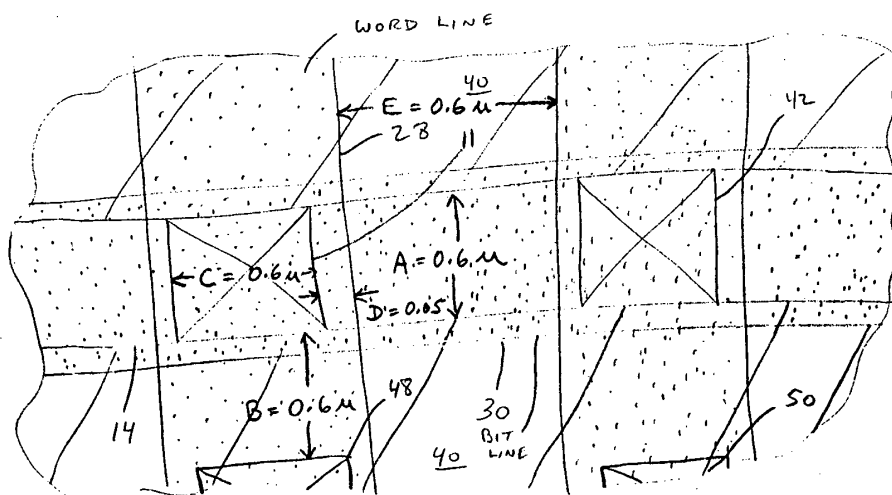 WORD LINE
40
E = 0.6 μ
28
11
42
C = 0.6 μ
A = 0.6 μ
D = 0.05
B = 0.6 μ
48
14
30
BIT
LINE
40
50